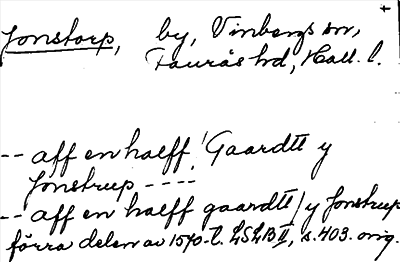 Jonstorp, by, Vinbergs sn,
Faurås hd, Hall. l.
-- aff en halff! Gaardtt y
Jonstrup ----
-- aff en halff gaardtt / y Jonstrup
förra delen av 1570-t. LSLB II, s. 403. orig.